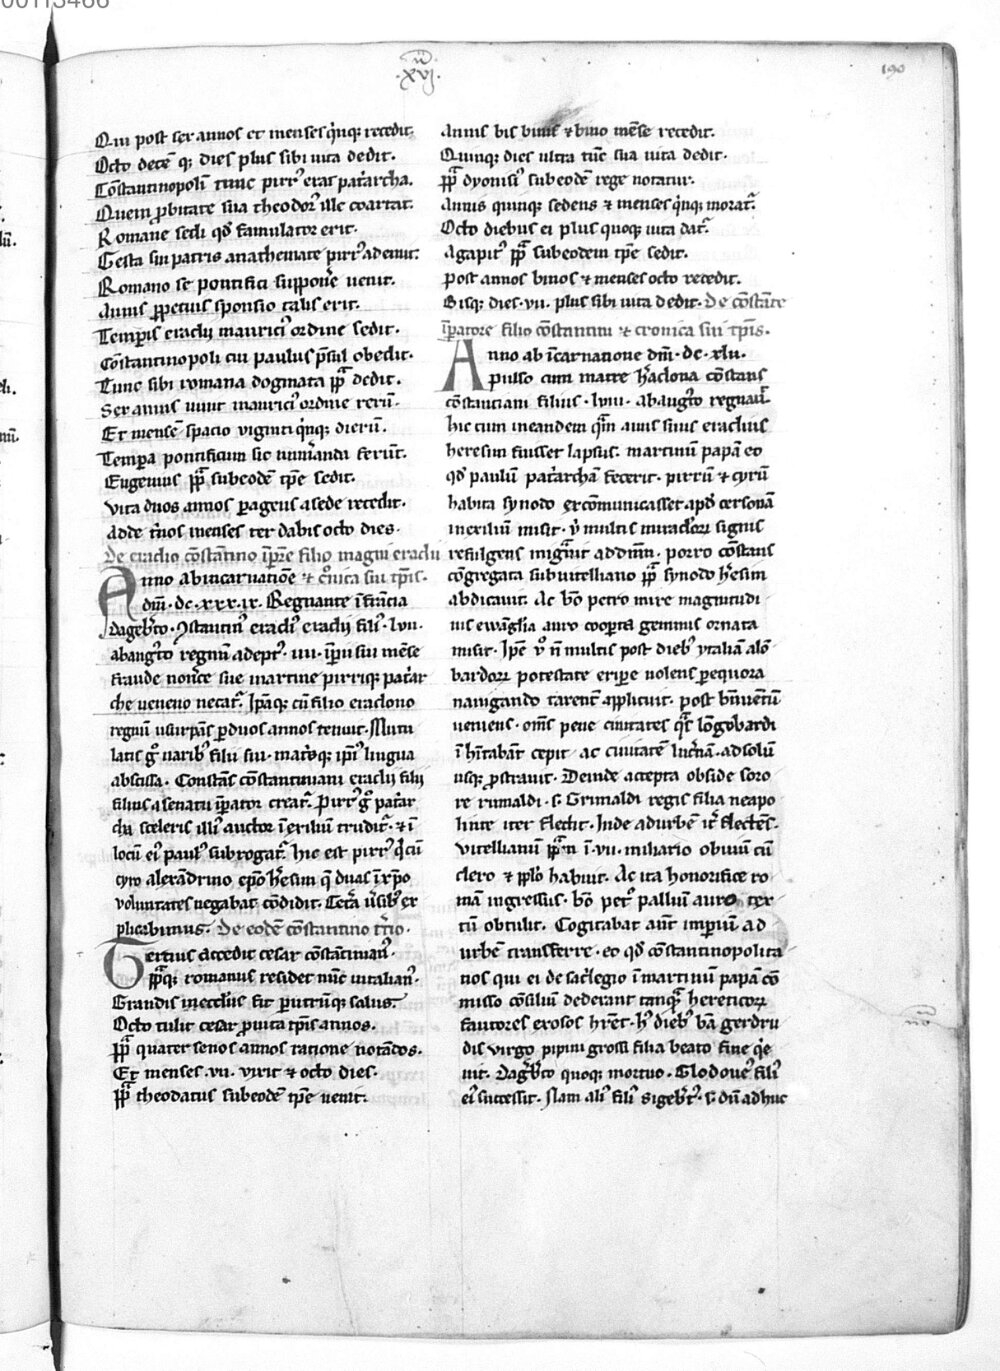 00113466
n̄
.xvj.
190
Qui post sex annos et menses q̇nq; recedit.
Octo decē q; dies plus sibi uita dedit.
Cōstantinopolī tunc pirr᷒ erat pat̾archa.
Quem ꝓbitate sua theodor᷒ ille coartat.
Romane sedi qđ famulator erit.
Gesta sui patris anathemate pirr᷒ ademit.
Romano se pontifici supponẽ uenit.
Annis ꝑpetuis sponsio talis erit.
Tempīs eraclii maurici᷒ ordine sedit.
Cōstantinopoli cui paulus p̄sul obedit.
Tunc sibi romana dogmata pp̄ dedit.
Sex annis uiuit maurici᷒ ordine rerū.
Et mensē spacio viginti q̇nq; dierū.
Tempa pontificum sic num̾anda ferūt.
Eugenius pp̄ subeodē tꝑe sedit.
Vita duos annos ꝑagens asede recedit.
Adde t̾nos menses ter dabis octo dies.
De eraclio cōstantino īꝑre filio magni eraclii
Anno abincarnatiōe ⁊ cͦnica sui tꝑis.
dn̄i. dc.xxx.ix. Regnante ī francia
dagob̾to. ꝯstantin᷒ eracli᷒ eraclii fili᷒. lvii.
abaug᷒to regnū adept᷒. iiii. īꝑii sui mēse
fraude nou̾ce sue martine pirriq; pat̾ar
che ueneno necat᷑. Ip̄aq; cū filio eraclono
regnū usurpās ꝑ duos annos tenuit. Muti
latis gͦ narib᷒ filii sui. mat̾sq; ip̄i᷒ lingua
abscissa. Constās cōstantiniani eraclii filii
filius asenatu īꝑator creat᷑. Pirr᷒ gͦ pat̾ar
cha sceleris illi᷒ auctor ī exiliū trudit᷑. ⁊ ī
locū ei᷒ paul᷒ subrogat᷑. hic est pirr᷒ q̇ cū
cyro alexādrino ep̄o h̾esim q̄ duas ī xp̄o
voluntates negabat cōdidit. Cet̾a ūsib᷒ ex
plicabimus. De eodē cōstantino t̾cio.
Tertius accedit cesar cōstātinian᷒.
pp̄q; romanus residet nūc uitalian᷒.
Grandis inecclīis fit ꝑ utrūq; salus.
Octo tulit cesar ꝓ uita tꝑis annos.
pp̄ quater senos annos ratione notādos.
Et menses .vii. vixit ⁊ octo dies.
pp̄ theodatus subeodē tꝑe uenit.
Annis bis binis ⁊ bino mēse recedit.
Quinq; dies ultra tūc sua uita dedit.
pp̄ dyonisi᷒ subeodē rege notatur.
Annis quinq; sedens ⁊ menses q̇nq; morat᷑.
Octo diebus ei plus quoq; uita dat᷑.
Agapit᷒ pp̄ subeodem tꝑe sedit.
Post annos binos ⁊ menses octo recedit.
Bisq; dies .vii. plus sibi uita dedit. De cōstāte
īꝑatore filio cōstantini ⁊ cronica sui tꝑis.
Anno ab īcarnatione dn̄i. dc.xlii.
Pulso cum matre h̾aclona cōstans
cōstantiani filius. lviii. abaug᷒to regnauit.
hic cum ineandem q̄m auus suus eraclius
heresim fuisset lapsus. martinū papā eo
qđ paulū pat̾archā fecerit. pirrū ⁊ cyrū
habita synodo excōmunicasset apđ cersonā
inexiliū misit. q̇ multis miraclo℞ signis
refulgens migrauit addn̄m. porro cōstans
cōgregata subuitelliano pp̄ synodo h̾esim
abdicauit. Ac bō petro mire magnitudi
nis ewāglia auro coopta gemmis ornata
misit. Ip̄e v̾ n̄ multis post dieb᷒ ytaliam alō
bardo℞ potestate eripe uolens ꝑ equora
nauigando tarent᷒ applicuit. post bn̄uentū
ueniens. om̄s pene ciuitates q̄s lōgobardi
ī hitabāt cepit. ac ciuitatē luc̾nā. adsolū
usq; ꝓstrauit. Deinde accepta obside soro
re rimaldi .s. Grimaldi regis filia neapo
lim iter flectit. Inde adurbē it̾ flectēs.
vitellianū pp̄m ī .vii. miliario obuiū cū
clero ⁊ pplo habuit. Ac ita honorifice ro
mā ingressus. bō petͦ palliū auro tex
tū obtulit. Cogitabat aut̄ imꝑiū ad
urbē transferre. eo qđ cōstantinopolita
nos qui ei de sac̾legio ī martinū papā cō
misso cōsiliū dederant tanq̄ hereticor℞
fautores exosos h̾ret. h᷒ dieb᷒ bā gerdru
dis virgo pipini grossi filia beato fine q̇e
uit. Dagob̾to quoq; mortuo. Clodoue᷒ fili᷒
ei᷒ successit. Nam ali᷒ fili᷒ sigeb̾t᷒ .s. dū adhuc